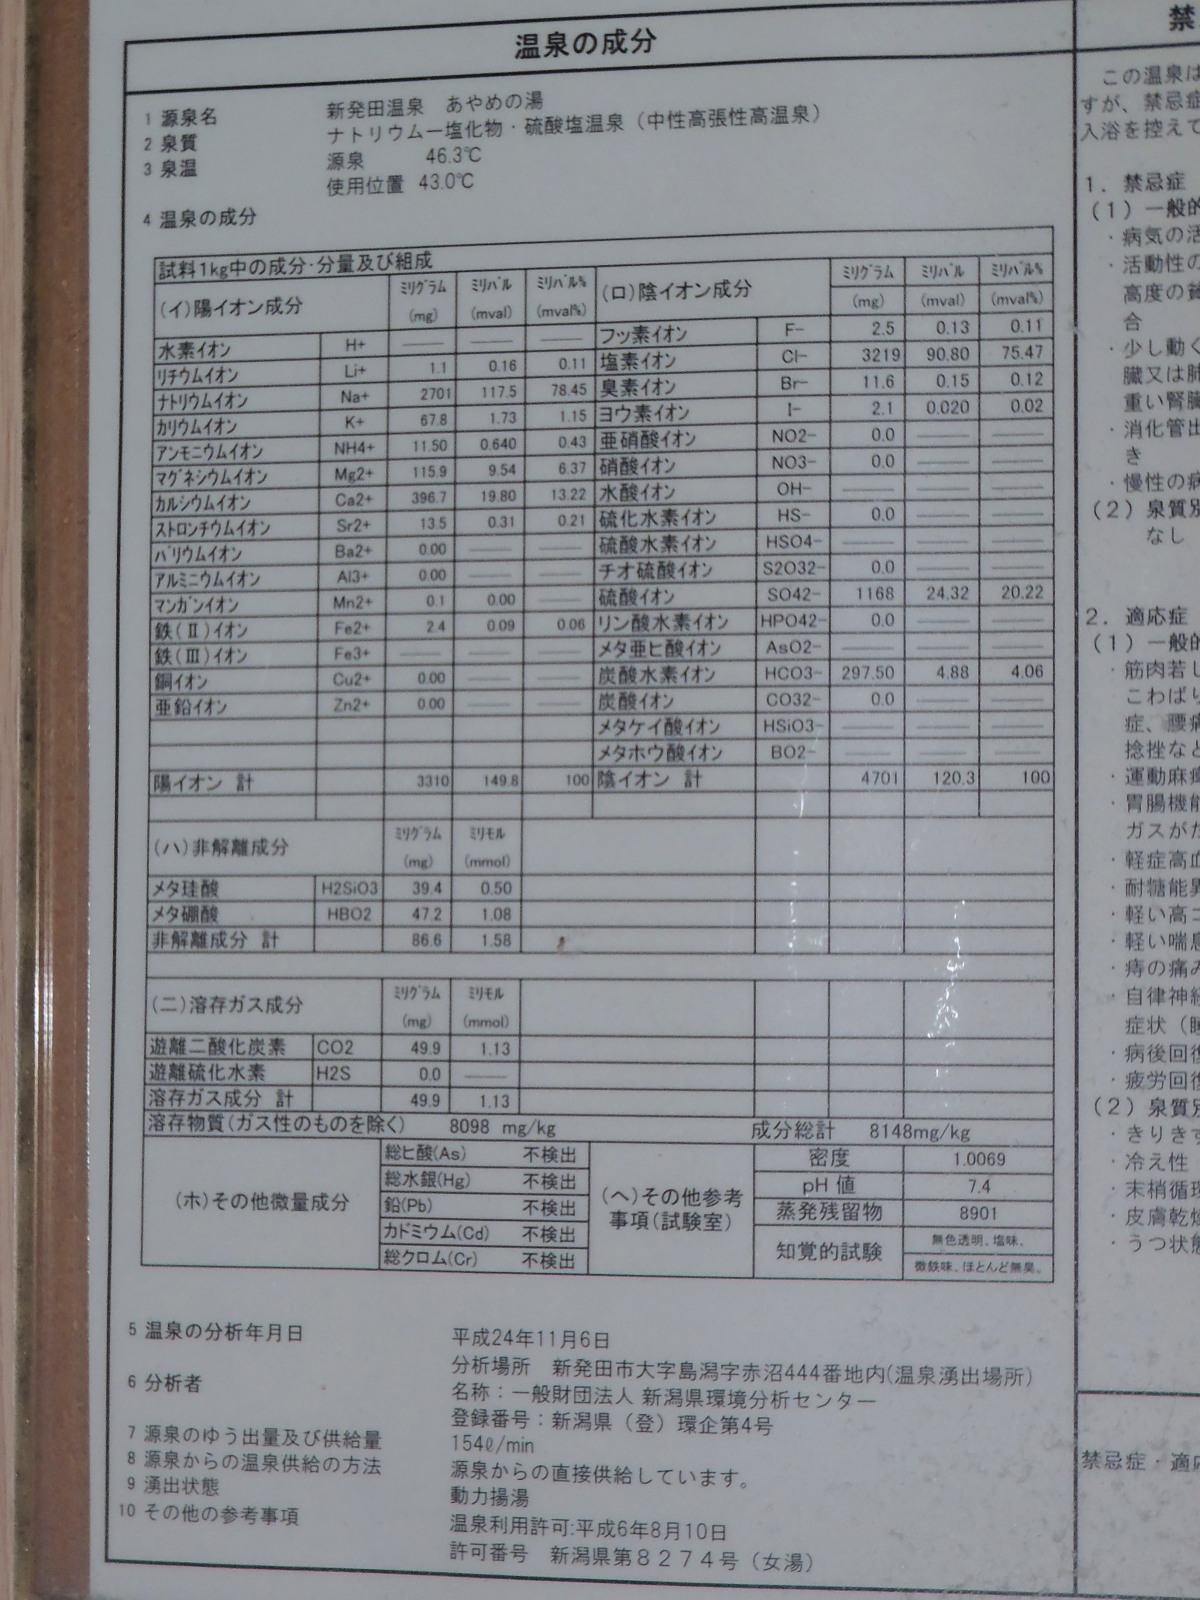 温泉の成分
1 源泉名 新発田温泉 あやめの湯
2 泉質 ナトリウムー塩化物・硫酸塩温泉（中性高張性高温泉）
3 泉温 源泉 46.3℃
使用位置 43.0℃
4 温泉の成分
試料1kg中の成分・分量及び組成
(イ)陽イオン成分 ミリグラム (mg) ミリバル (mval) ミリバル% (mval%) (ロ)陰イオン成分 ミリグラム (mg) ミリバル (mval) ミリバル% (mval%)
水素イオン H+ —— —— —— フッ素イオン F- 2.5 0.13 0.11
リチウムイオン Li+ 1.1 0.16 0.11 塩素イオン Cl- 3219 90.80 75.47
ナトリウムイオン Na+ 2701 117.5 78.45 臭素イオン Br- 11.6 0.15 0.12
カリウムイオン K+ 67.8 1.73 1.15 ヨウ素イオン I- 2.1 0.020 0.02
アンモニウムイオン NH4+ 11.50 0.640 0.43 亜硝酸イオン NO2- 0.0 —— ——
マグネシウムイオン Mg2+ 115.9 9.54 6.37 硝酸イオン NO3- 0.0 —— ——
カルシウムイオン Ca2+ 396.7 19.80 13.22 水酸イオン OH- —— —— ——
ストロンチウムイオン Sr2+ 13.5 0.31 0.21 硫化水素イオン HS- 0.0 —— ——
バリウムイオン Ba2+ 0.00 —— —— 硫酸水素イオン HSO4- —— —— ——
アルミニウムイオン Al3+ 0.00 —— —— チオ硫酸イオン S2O32- 0.0 —— ——
マンガンイオン Mn2+ 0.1 0.00 —— 硫酸イオン SO42- 1168 24.32 20.22
鉄(Ⅱ)イオン Fe2+ 2.4 0.09 0.06 リン酸水素イオン HPO42- 0.0 —— ——
鉄(Ⅲ)イオン Fe3+ —— —— —— メタ亜ヒ酸イオン AsO2- —— —— ——
銅イオン Cu2+ 0.00 —— —— 炭酸水素イオン HCO3- 297.50 4.88 4.06
亜鉛イオン Zn2+ 0.00 —— —— 炭酸イオン CO32- 0.0 —— ——
メタケイ酸イオン HSiO3- —— —— ——
メタホウ酸イオン BO2- —— —— ——
陽イオン 計 3310 149.8 100 陰イオン 計 4701 120.3 100
(ハ)非解離成分 ミリグラム (mg) ミリモル (mmol)
メタ珪酸 H2SiO3 39.4 0.50
メタ硼酸 HBO2 47.2 1.08
非解離成分 計 86.6 1.58
(ニ)溶存ガス成分 ミリグラム (mg) ミリモル (mmol)
遊離二酸化炭素 CO2 49.9 1.13
遊離硫化水素 H2S 0.0 ——
溶存ガス成分 計 49.9 1.13
溶存物質(ガス性のものを除く) 8098 mg/kg 成分総計 8148mg/kg
(ホ)その他微量成分
総ヒ酸(As) 不検出
総水銀(Hg) 不検出
鉛(Pb) 不検出
カドミウム(Cd) 不検出
総クロム(Cr) 不検出
(ヘ)その他参考
事項(試験室)
密度 1.0069
pH 値 7.4
蒸発残留物 8901
知覚的試験 無色透明、塩味、
微鉄味、ほとんど無臭。
5 温泉の分析年月日 平成24年11月6日
分析場所 新発田市大字島潟字赤沼444番地内(温泉湧出場所)
6 分析者 名称：一般財団法人 新潟県環境分析センター
登録番号：新潟県（登）環企第4号
7 源泉のゆう出量及び供給量 154ℓ/min
8 源泉からの温泉供給の方法 源泉からの直接供給しています。
9 湧出状態 動力揚湯
10 その他の参考事項 温泉利用許可:平成6年8月10日
許可番号 新潟県第８２７４号（女湯）
禁
この温泉は
すが、禁忌症
入浴を控えて
1. 禁忌症
(1) 一般的
・病気の活
・活動性の
高度の貧
合
・少し動く
臓又は肺
重い腎臓
・消化管出
き
・慢性の病
(2) 泉質別
なし
2. 適応症
(1) 一般的
・筋肉若し
こわばり
症、腰痛
捻挫など
・運動麻痺
・胃腸機能
ガスがた
・軽症高血
・耐糖能異
・軽い高コ
・軽い喘息
・痔の痛み
・自律神経
症状（睡
・病後回復
・疲労回復
(2) 泉質別
・きりきず
・冷え性
・末梢循環
・皮膚乾燥
・うつ状態
禁忌症・適応